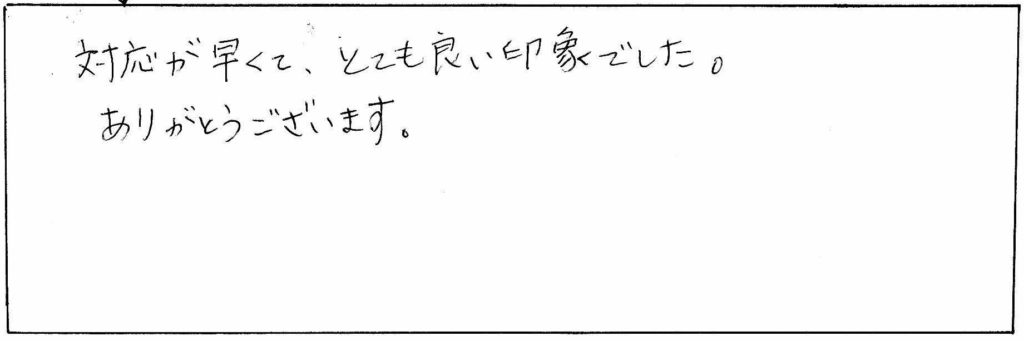 対応が早くて、とても良い印象でした。
ありがとうございます。